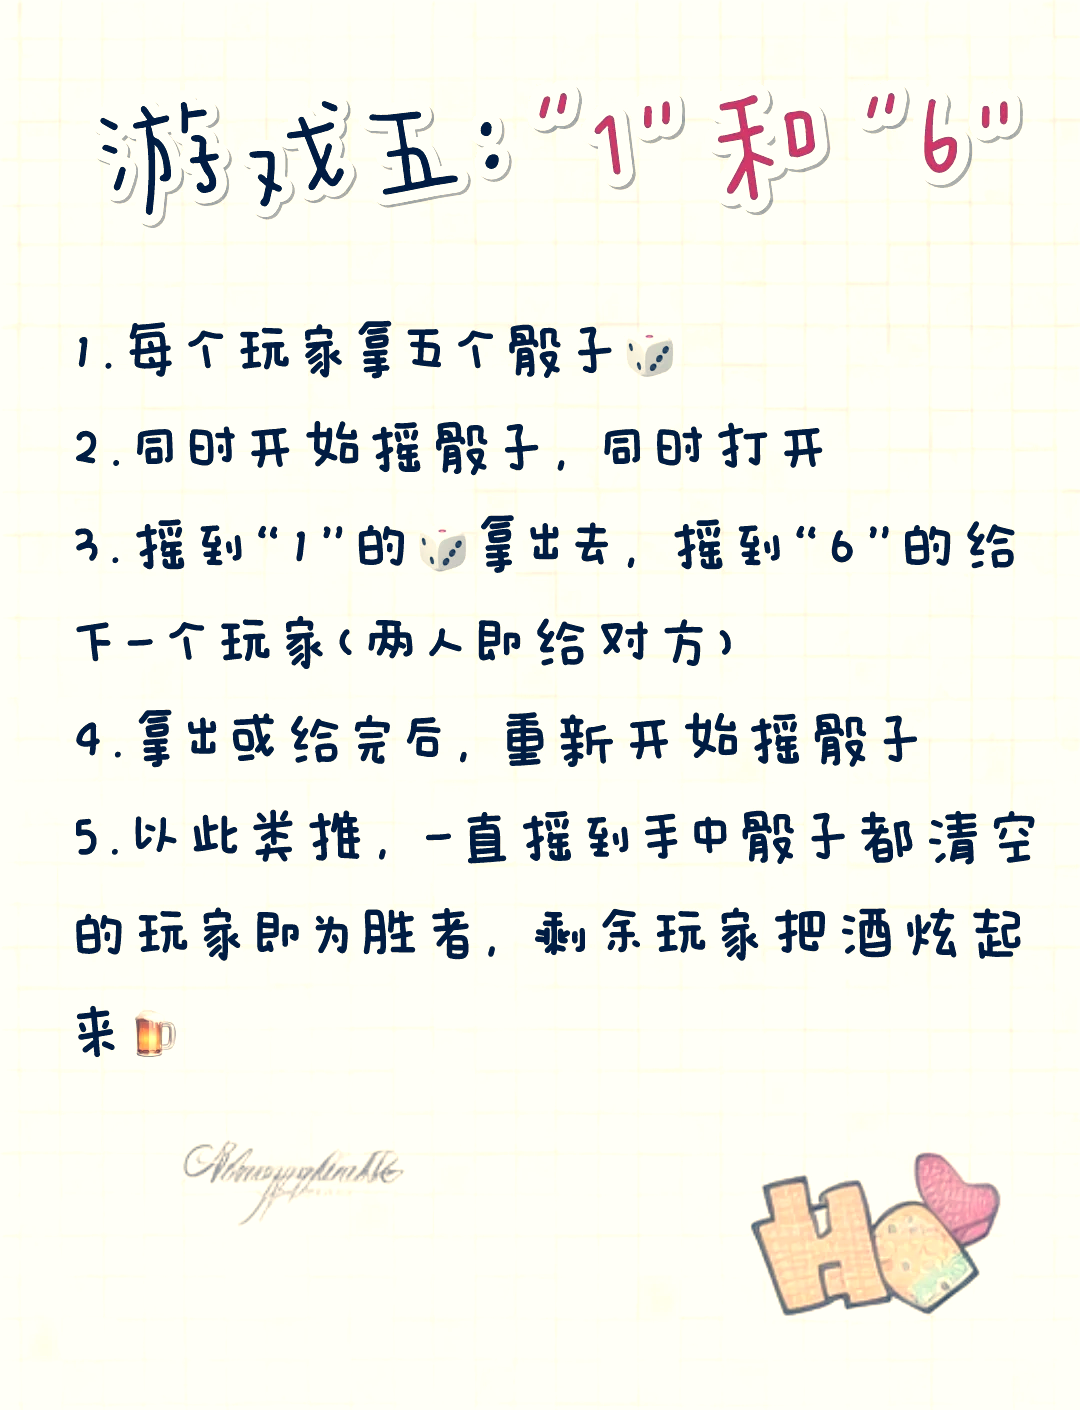 游戏五："1"和"6"
1.每个玩家拿五个骰子🎲
2.同时开始摇骰子，同时打开
3.摇到“1”的🎲拿出去，摇到“6”的给
下一个玩家(两人即给对方)
4.拿出或给完后，重新开始摇骰子
5.以此类推，一直摇到手中骰子都清空
的玩家即为胜者，剩余玩家把酒炫起
来🍺